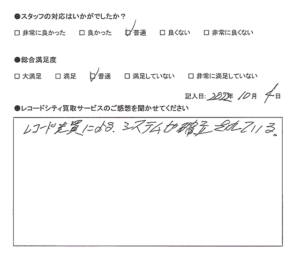 ●スタッフの対応はいかがでしたか？
□ 非常に良かった □ 良かった ☑ 普通 □ 良くない □ 非常に良くない
●総合満足度
□ 大満足 □ 満足 ☑ 普通 □ 満足していない □ 非常に満足していない
記入日: 2022年 10月 4日
●レコードシティ買取サービスのご感想を聞かせてください
レコード売買による、システムが確立されている。